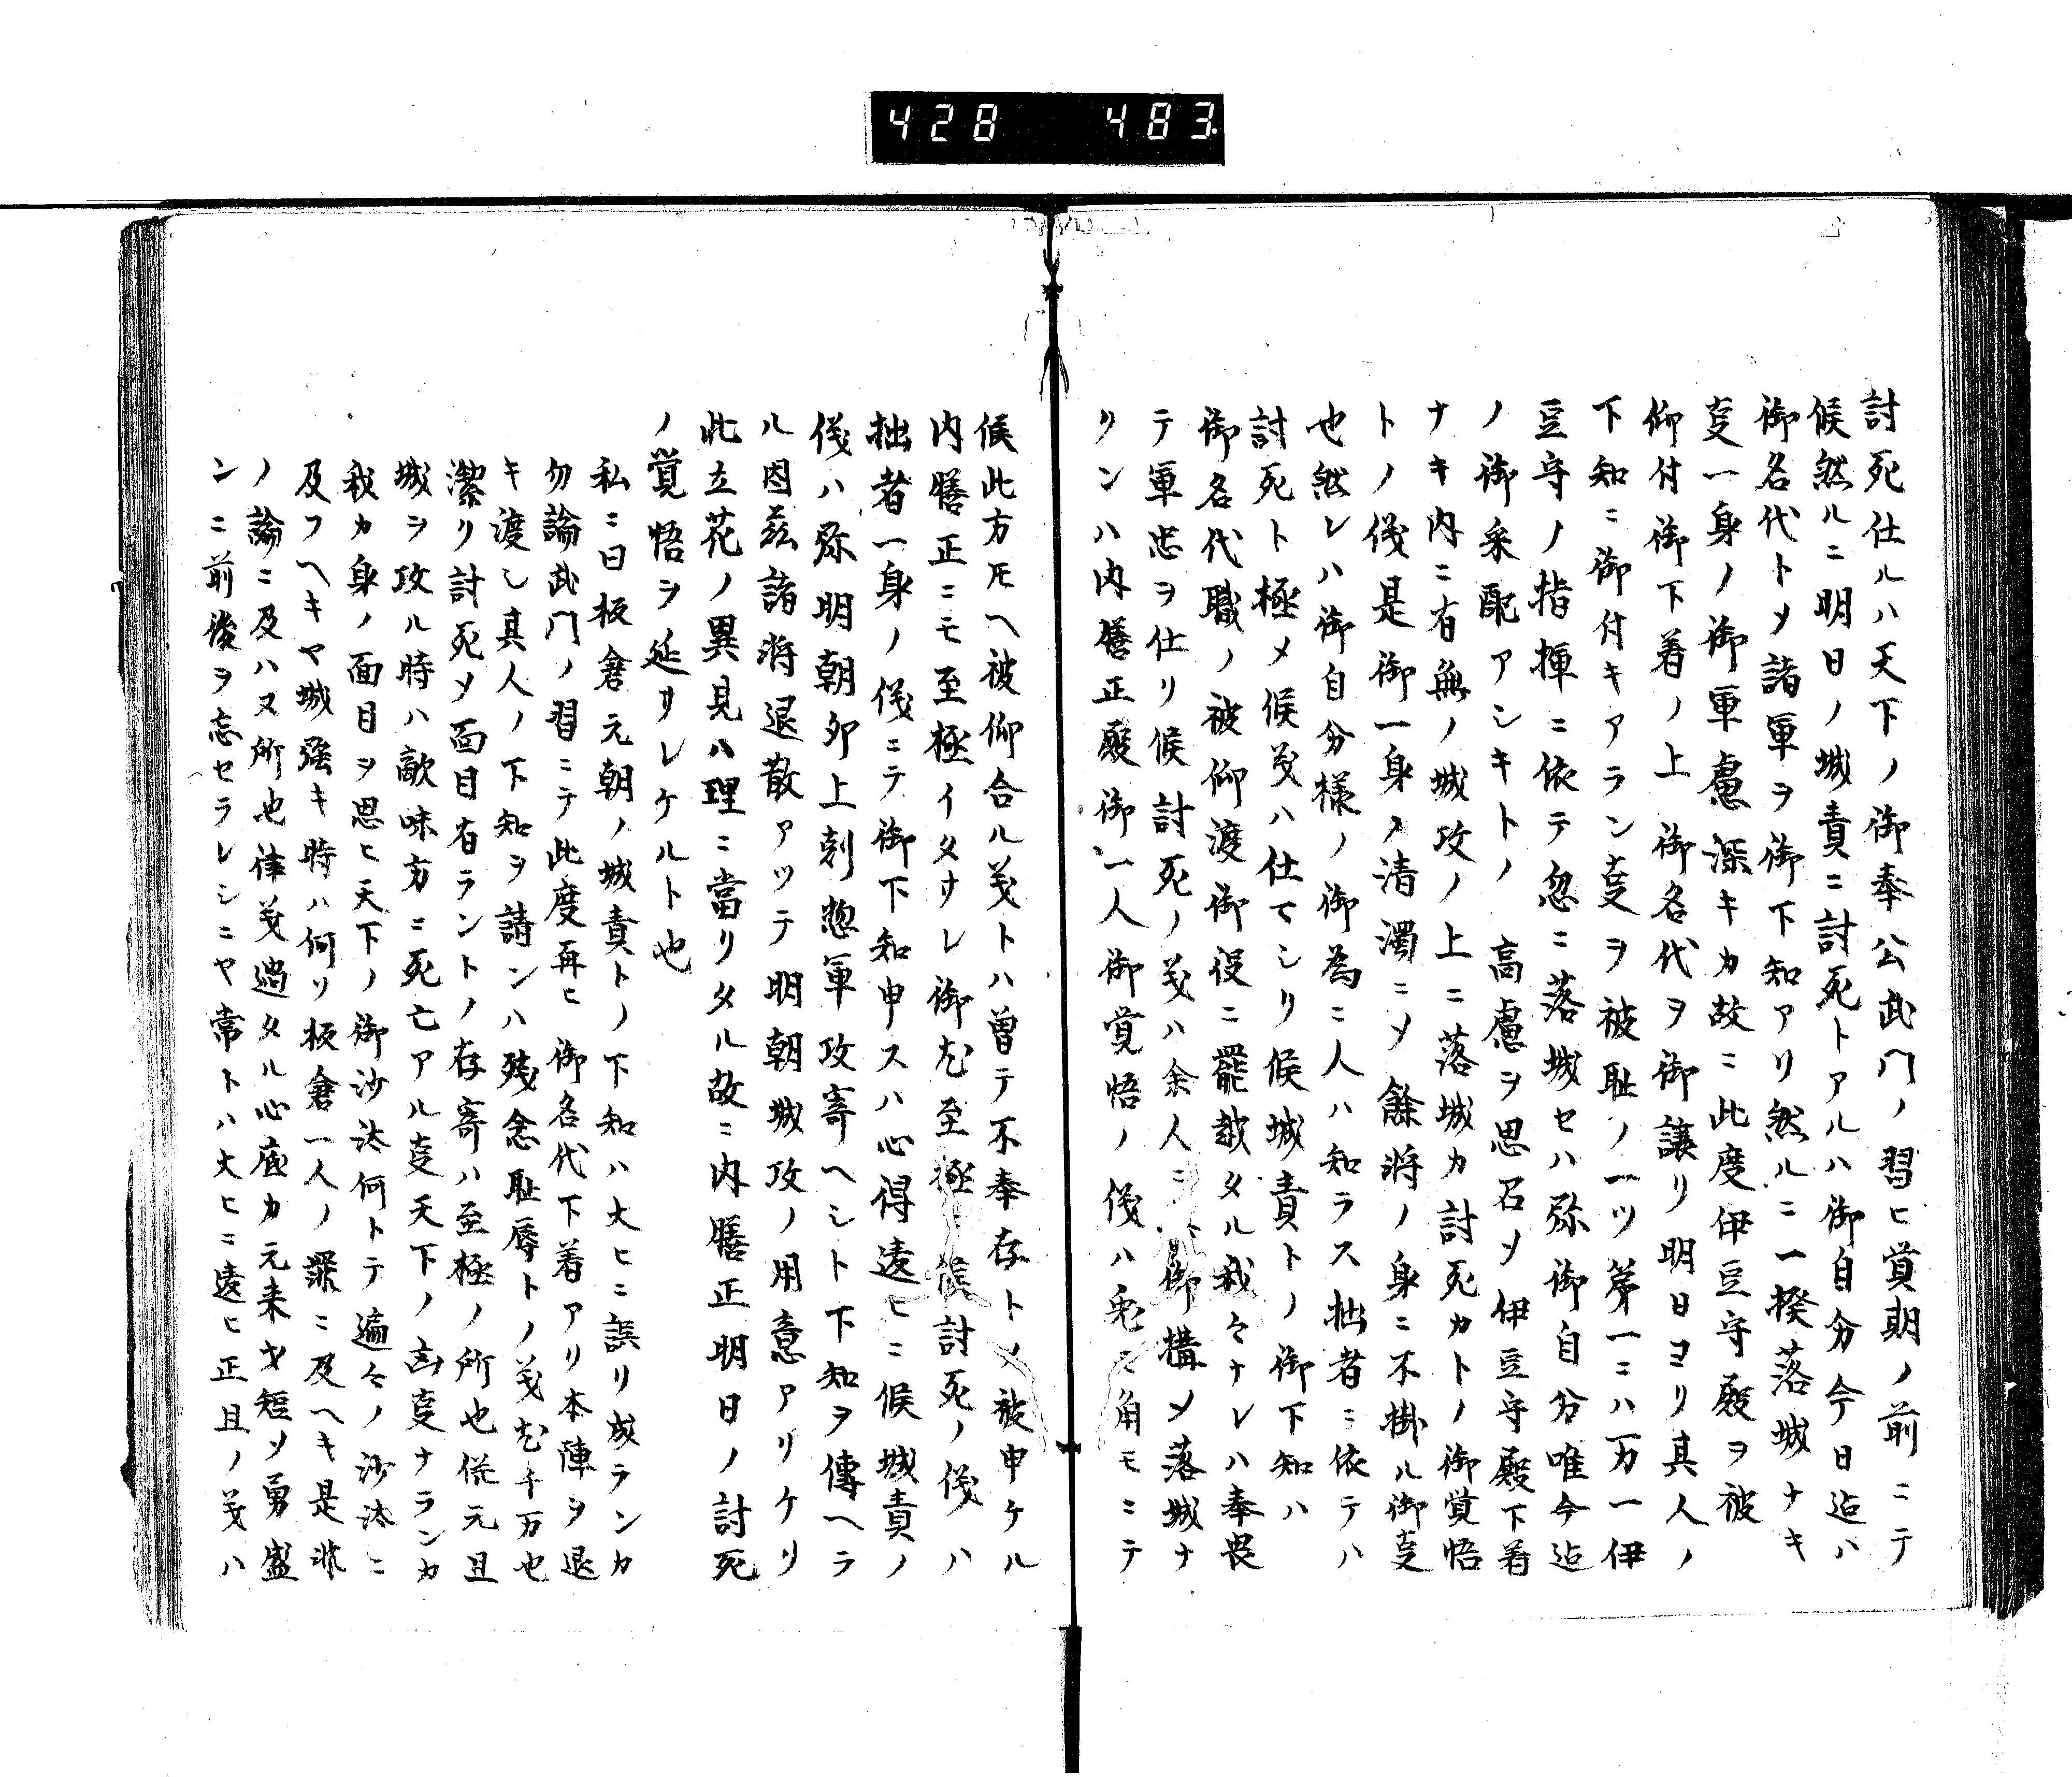 428 483
討死仕ルハ天下ノ御奉公武門ノ習ヒ賞期ノ前ニテ
候然ルニ明日ノ城責ニ討死トアルハ御自分今日迠ハ
御名代トメ諸軍ヲ御下知アリ然ルニ一揆落城ナキ
叓一身ノ御軍慮深キカ故ニ此度伊豆守殿ヲ被
仰付御下着ノ上御名代ヲ御譲リ明日ヨリ其人ノ
下知ニ御付キアラン叓ヲ被耻ノ一ツ第一ニハ万一伊
豆守ノ指揮ニ依テ忽ニ落城セハ弥御自分唯今迠
ノ御采配アシキトノ高慮ヲ思召メ伊豆守殿下着
ナキ内ニ有無ノ城攻ノ上ニ落城カ討死カトノ御覚悟
トノ儀是御一身ノ清濁ニメ餘将ノ身ニ不掛ル御叓
也然レハ御自分様ノ御為ニ人ハ知ラス拙者ニ依テハ
討死ト極メ候義ハ仕マシリ候城責トノ御下知ハ
御名代職ノ被仰渡御役ニ罷越タル我々ナレハ奉畏
テ軍忠ヲ仕リ候討死ノ義ハ余人ニ御構メ落城ナ
クンハ内膳正殿御一人御覚悟ノ儀ハ兎モ角モニテ
候此方共ヘ被仰合ル義トハ曽テ不奉存トメ被申ケル
内膳正ニモ至極イタサレ御尤至極ニ候討死ノ儀ハ
拙者一身ノ儀ニテ御下知申スハ心得違ヒニ候城責ノ
儀ハ弥明朝卯上剋惣軍攻寄ヘシト下知ヲ傳ヘラ
ル因茲諸将退散アツテ明朝城攻ノ用意アリケリ
此立花ノ異見ハ理ニ當リタル故ニ内膳正明日ノ討死
ノ覚悟ヲ延サレケルト也
私ニ曰板倉元朝ノ城責トノ下知ハ大ヒニ誤リ成ランカ
勿論武門ノ習ニテ此度再ヒ御名代下着アリ本陣ヲ退
キ渡シ其人ノ下知ヲ請ンハ残念耻辱トノ義尤千万也
潔リ討死メ面目有ラントノ存寄ハ至極ノ所也従元且
城ヲ攻ル時ハ敵味方ニ死亡アル叓天下ノ凶叓ナランカ
我カ身ノ面目ヲ思ヒ天下ノ御沙汰何トテ遍々ノ沙汰ニ
及フヘキヤ城強キ時ハ何ソ板倉一人ノ罪ニ及ヘキ是非
ノ論ニ及ハヌ所也律義過タル心底カ元来才短メ勇盛
ンニ前後ヲ忘セラレシニヤ常トハ大ヒニ違ヒ正且ノ義ハ